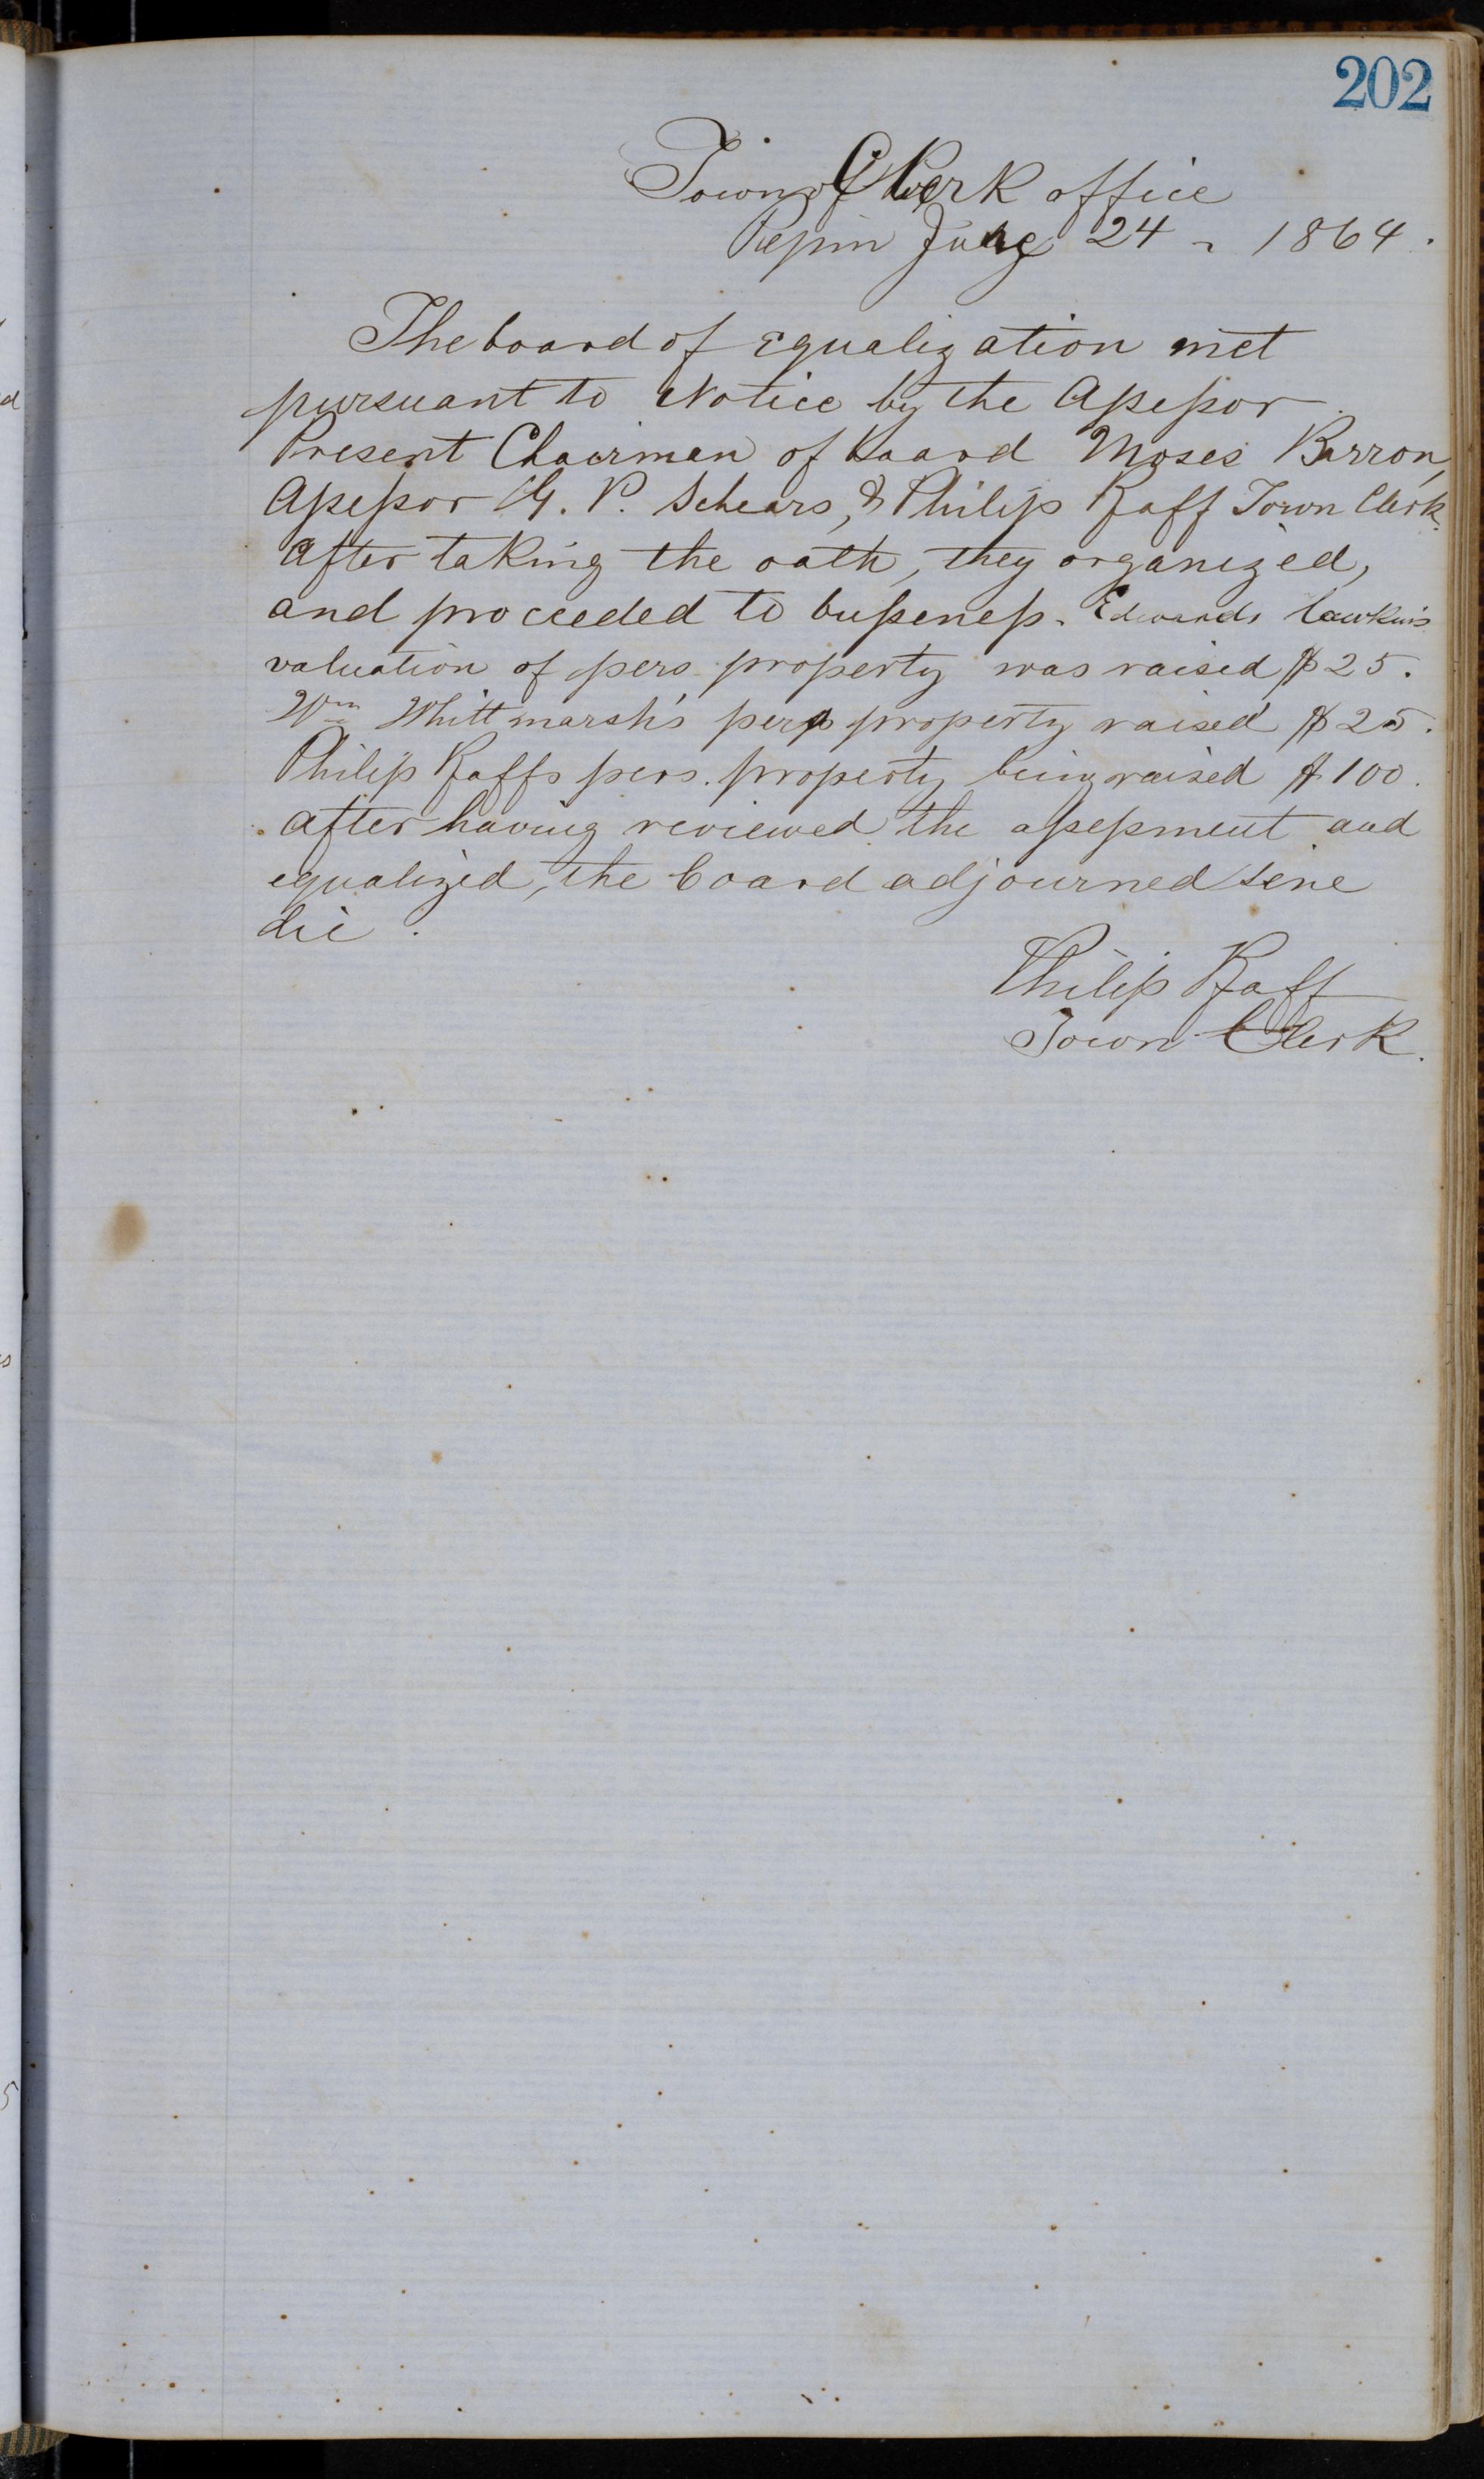 202
Town Clerk office
Pepin June 24 - 1864.
The board of Equalization met
pursuant to Notice by the Assessor.
Present Chairman of board Moses Barron,
Assessor G. P. Schears, & Philip Raff Town Clerk.
After taking the oath, they organized,
and proceeded to busseness. Edwards
valuation of pers. property was raised $25.
Wm Whittmarsh's pers property raised $25.
Philip Raffs pers. property being raised $100.
After having reviewed the assessment and
equalized, the board adjourned sene
die.
Philip Raff
Town Clerk.